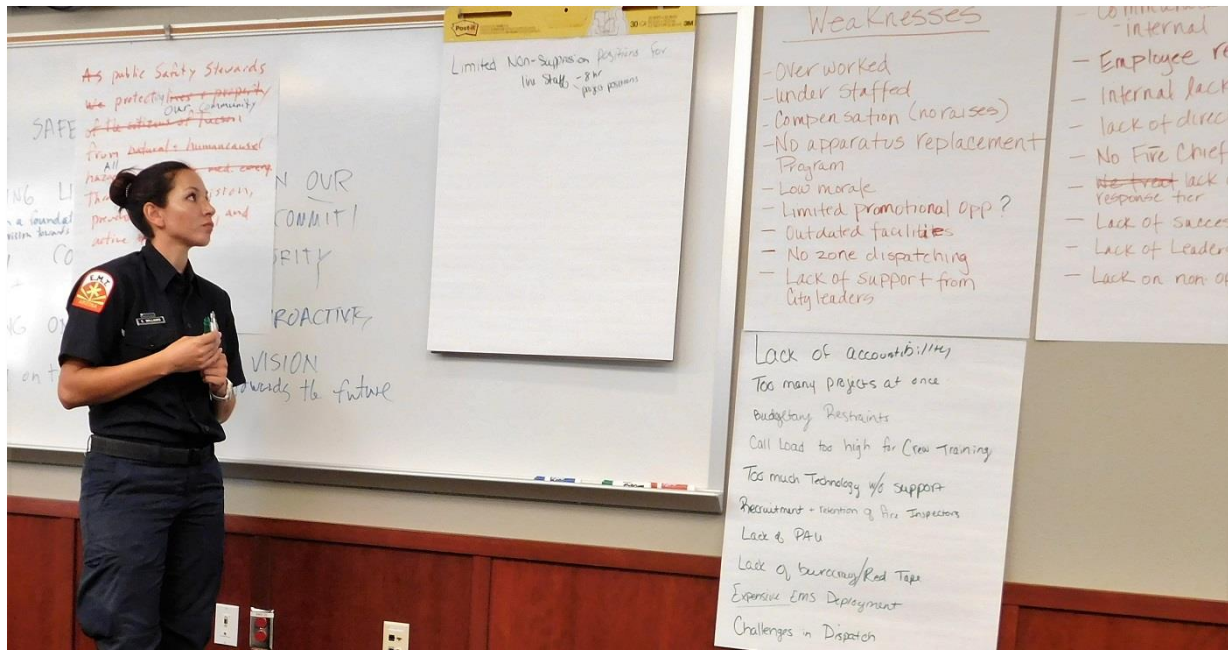 As public Safety Stewards
We protecting lives & property
our community
of the citizens of Tucson
from natural & humancaused
All
med emerg
and
active
SAFE
OUR
COMMIT
RITY
ROACTIVE
VISION
towards the future
CO
on t
Post-it
Limited Non-Suppression positions for
line staff - 8 hr
positions
Weaknesses
- Over worked
- under staffed
- Compensation (no raises)
- No apparatus replacement
Program
- Low morale
- Limited promotional opp?
- Outdated facilities
- No zone dispatching
- Lack of support from
City leaders
- internal
- Employee re
- Internal lack
- lack of direc
- No Fire Chief
- We treat lack
response tier
- Lack of succes
- Lack of Leader
- Lack on non o
Lack of accountibility
Too many projects at once
Budgetary Restraints
Call Load too high for Crew Training
Too much Technology w/o support
Recruitment + retention of Fire Inspectors
Lack of PAU
Lack of burocracy/Red Tape
Expensive EMS Deployment
Challenges in Dispatch
E.M.T.